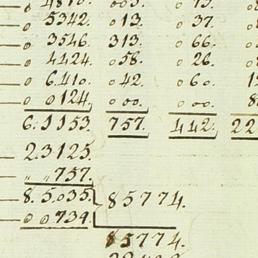 0 5342. 0 13. 0 37.
0 3546. 313. 0 66.
0 4424. 0 58. 0 26.
0 6410. 0 42. 0 60.
0 0124. 0 00. 0 00.
6.1153. 757. 442. 22
2.3125.
" " 757.
8.5035. 85774.
0 0739.
85774.